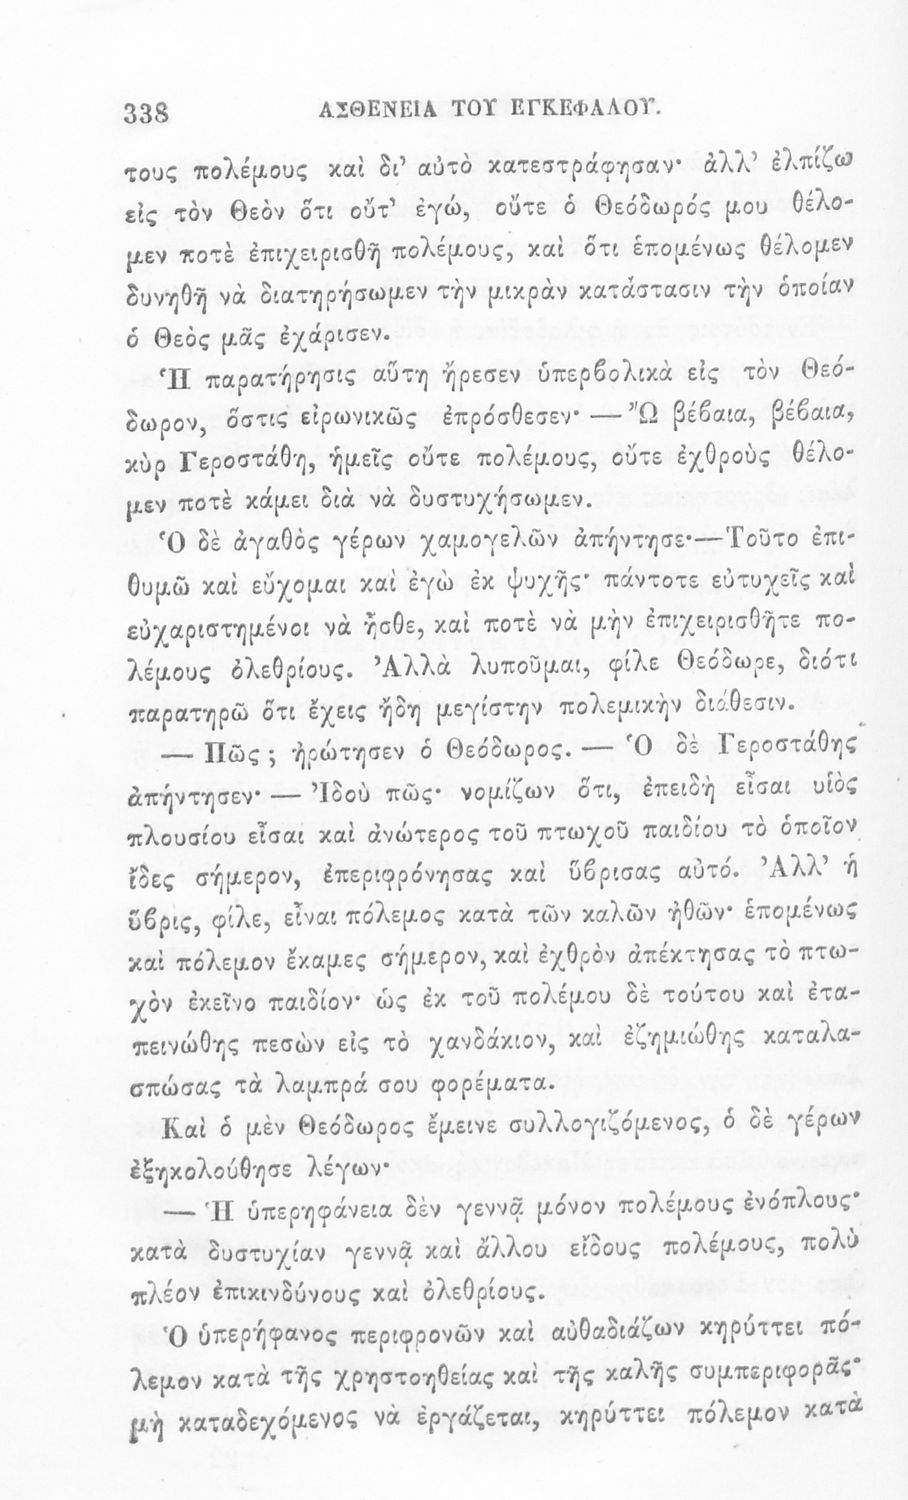 338 ΑΣΘΕΝΕΙΑ ΤΟΥ ΕΓΚΕΦΑΛΟΥ.
τους πολέμους καὶ δι’ αὐτὸ κατεστράφησαν· ἀλλ’ ἐλπίζω
εἰς τὸν Θεὸν ὅτι οὔτ’ ἐγώ, οὔτε ὁ Θεόδωρός μου θέλο-
μεν ποτὲ ἐπιχειρισθῆ πολέμους, καὶ ὅτι ἑπομένως θέλομεν
δυνηθῆ νὰ διατηρήσωμεν τὴν μικρὰν κατάστασιν τὴν ὁποίαν
ὁ Θεὸς μᾶς ἐχάρισεν.
Ἡ παρατήρησις αὕτη ἤρεσεν ὑπερβολικὰ εἰς τὸν Θεό-
δωρον, ὅστις εἰρωνικῶς ἐπρόσθεσεν· — Ὢ βέβαια, βέβαια,
κὺρ Γεροστάθη, ἡμεῖς οὔτε πολέμους, οὔτε ἐχθροὺς θέλο-
μεν ποτὲ κάμει διὰ νὰ δυστυχήσωμεν.
Ὁ δὲ ἀγαθὸς γέρων χαμογελῶν ἀπήντησε·—Τοῦτο ἐπι-
θυμῶ καὶ εὔχομαι καὶ ἐγὼ ἐκ ψυχῆς· πάντοτε εὐτυχεῖς καὶ
εὐχαριστημένοι νὰ ἦσθε, καὶ ποτὲ νὰ μὴν ἐπιχειρισθῆτε πο-
λέμους ὀλεθρίους. Ἀλλὰ λυποῦμαι, φίλε Θεόδωρε, διότι
παρατηρῶ ὅτι ἔχεις ἤδη μεγίστην πολεμικὴν διάθεσιν.
— Πῶς ; ἠρώτησεν ὁ Θεόδωρος. — Ὁ δὲ Γεροστάθης
ἀπήντησεν· — Ἰδοὺ πῶς· νομίζων ὅτι, ἐπειδὴ εἶσαι υἱὸς
πλουσίου εἶσαι καὶ ἀνώτερος τοῦ πτωχοῦ παιδίου τὸ ὁποῖον
ἴδες σήμερον, ἐπεριφρόνησας καὶ ὕβρισας αὐτό. Ἀλλ’ ἡ
ὕβρις, φίλε, εἶναι πόλεμος κατὰ τῶν καλῶν ἠθῶν· ἑπομένως
καὶ πόλεμον ἔκαμες σήμερον, καὶ ἐχθρὸν ἀπέκτησας τὸ πτω-
χὸν ἐκεῖνο παιδίον· ὡς ἐκ τοῦ πολέμου δὲ τούτου καὶ ἐτα-
πεινώθης πεσὼν εἰς τὸ χανδάκιον, καὶ ἐζημιώθης καταλα-
σπώσας τὰ λαμπρά σου φορέματα.
Καὶ ὁ μὲν Θεόδωρος ἔμεινε συλλογιζόμενος, ὁ δὲ γέρων
ἐξηκολούθησε λέγων·
— Ἡ ὑπερηφάνεια δὲν γεννᾷ μόνον πολέμους ἐνόπλους·
κατὰ δυστυχίαν γεννᾷ καὶ ἄλλου εἴδους πολέμους, πολὺ
πλέον ἐπικινδύνους καὶ ὀλεθρίους.
Ὁ ὑπερήφανος περιφρονῶν καὶ αὐθαδιάζων κηρύττει πό-
λεμον κατὰ τῆς χρηστοηθείας καὶ τῆς καλῆς συμπεριφορᾶς·
μὴ καταδεχόμενος νὰ ἐργάζεται, κηρύττει πόλεμον κατὰ